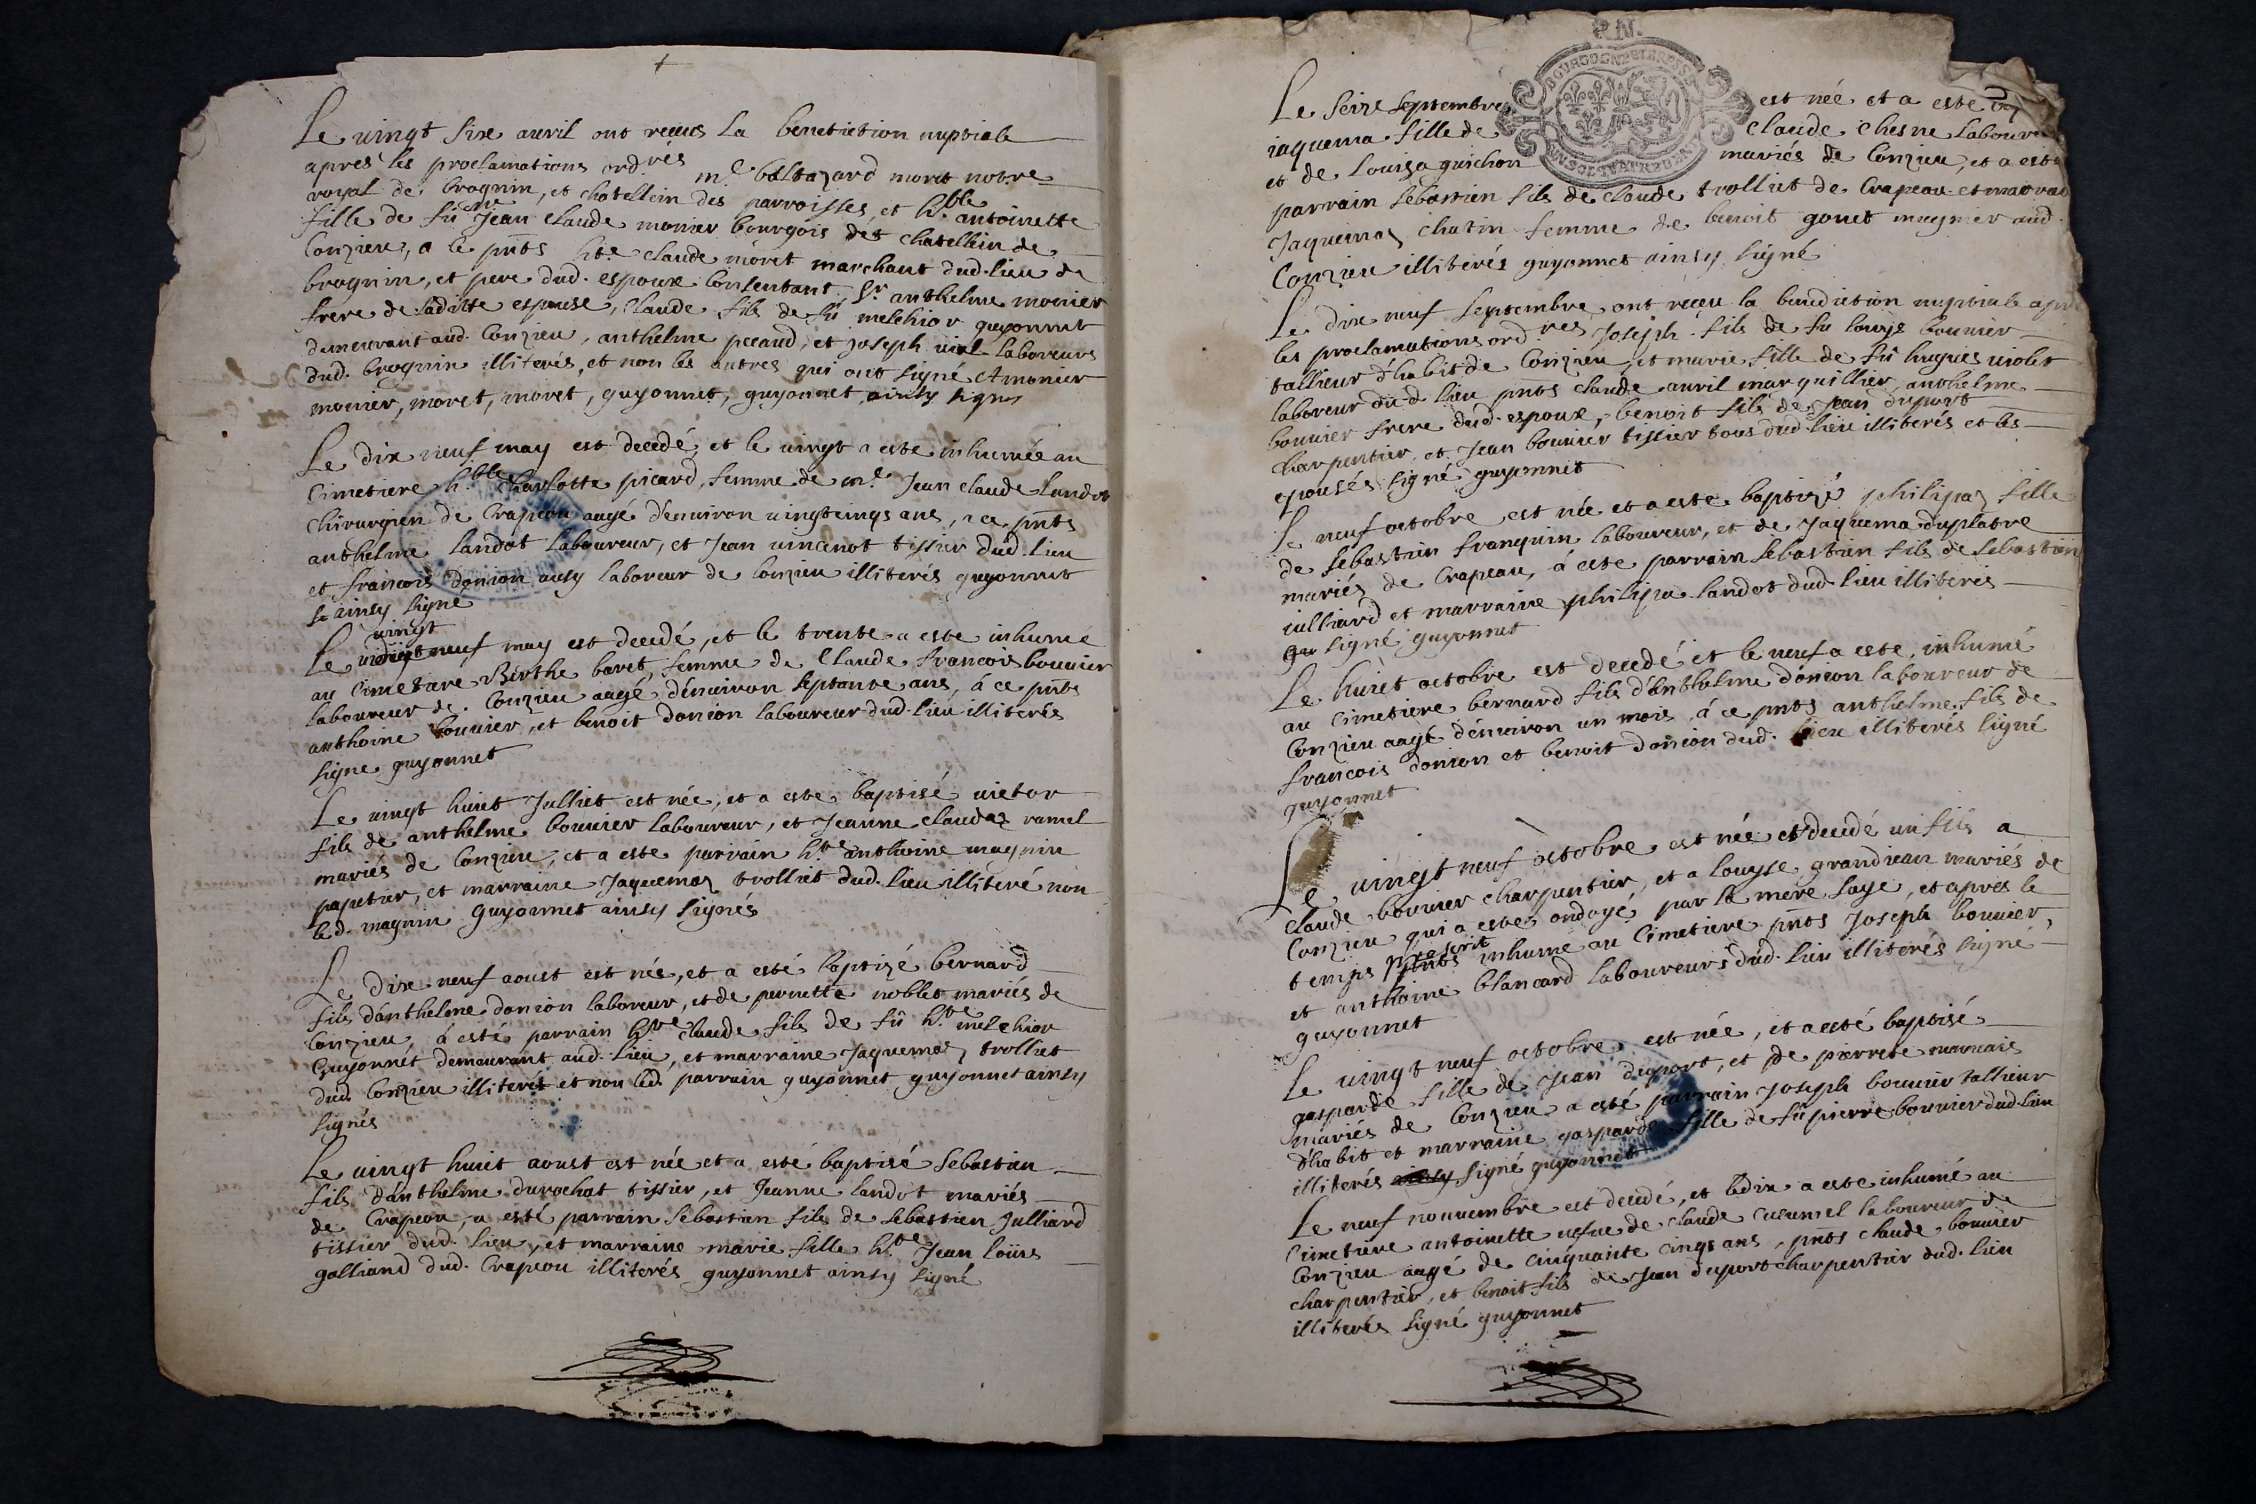 Le vingt sixe avril ont receus La benediction nuptiale
apres les proclamations ord.res m.e baltazard moret not.re
royal de brognin, et chatellein des parroisses, et h.ble antoinette
fille de fû Jean Claude monier bourgois de chatellin de
Conzieu, a ce pnts h.te claude moret marchant dud. lieu de
brognin, et pere dud. espoux Consentant Sr. anthelme monier
frere de laditte espouse, Claude fils de fû melchior guyonnet
demeurant aud. Conzieu, anthelme pecaud, et joseph vial Laboreurs
dud. brognin illiterés, et non les autres qui ont signé Amonier
monier, moret, moret, guyonnet, guyonnet ainsy signes
Le dix neuf may est decedé et le vingt a este inhumée au
Cimetiere h.ble Charlotte picard, femme de m.e Jean claude Landot
Chirurgien de Crapeou aagé denviron vingtcinqs ans, a ce pnts
anthelme Landot Laboureur, et Jean vincenot tissier dud. lieu
et francois donion aussy laboreur de Conzieu illiterés guyonnet
ainsy signe
vingt
Le neuf may est decedé, et le trente a este inhume
au Cimetiere Berthe baret, femme de Claude francois bouvier
laboureur de Conzieu aagé d'environ septante ans, á ce pnts
anthoine bouvier, et benoit donion laboureur dud. lieu illiterés
signe guyonnet
Le vingt huict Julliet est née, et a este baptisé victor
fils de anthelme bouvier laboureur, et Jeanne claudaz ramel
mariés de Conzieu, et a este parrain h.te anthoine magnin
papetier, et marraine Jaquemaz trolliet dud. lieu illiteré non
led. magnin guyonnet ainsy signés
Le dix neuf aoust est née, et a esté baptizé bernard
fils d'anthelme donion laboreur, et de pernette noblet mariés de
Conzieu, á esté parrain h.te claude fils de fû h.te melchior
Guyonnet demeurant aud. lieu, et marraine Jaquemaz trolliet
dud. Conzieu illiterés et non led. parrain guyonnet guyonnet ainsy
signés
Le vingt huict aoust est née et a esté baptisé Sebastien
fils d'anthelme durochat tissier, et Jeanne landot mariés
de Crapeou, a esté parrain Sebastien fils de Sebastien Julliard
tissier dud. lieu, et marraine marie fille h.te Jean loüis
galliand dud. Crapeou illiterés guyonnet ainsy signé
Le seize septembre est née et a este
jaquema fille de Claude Chesne Laboureur
et de Louisa guichon mariés de Conzieu, et a este
parrain Sebastien fils de claude trolliet de Crapeau et marraine
Jaquemaz chatin femme de benoit gonet magnier aud.
Conzieu illiterés guyonnet ainsy signé
Le dix neuf septembre ont receu la benediction nuptiale apres
les proclamations ord.res Joseph fils de fu louys bouvier
tallieur d'habit de Conzieu, et marie fille de fû hugues violet
laboreur dud. lieu pnts claude avril marguillier, anthelme
bouvier frere dud. espoux, benoit fils de Jean duport
charpentier, et Jean bouvier tissier tous dud. lieu illiterés et les
epousés signé guyonnet
Le neuf octobre est née et a este baptizé philipaz fille
de Sebastien franquin laboureur, et de Jaquema duplatre
mariés de Crapeau, á este parrain Sebastien fils de Sebastien
julliard et marraine philipa landot dud. lieu illiteres
signé guyonnet
Le huict octobre est decedé et le neuf a este inhumé
au Cimetiere bernard fils d'Anthelme donion laboureur de
Conzieu aagé d'environ un mois, á ce pnts anthelme fils de
francois donion et benoit donion dud. lieu illiterés signé
guyonnet
Le vingt neuf octobre est née et decedé un fils a
Claude bouvier charpentier, et a louyse grandjean mariés de
Conzieu qui a este ondoyé par la mere sage, et apres le
temps prescrit inhume au Cimetiere pnts Joseph bouvier,
et anthoine blancard laboureurs dud. lieu illiterés signé
guyonnet
Le vingt neuf octobre est née, et a esté baptisé
gasparde fille de Jean duport, et de pierrete marnais
mariés de Conzieu a esté parrain Joseph bouvier tallieur
d'habit et marraine gasparde fille de fû pierre bouvier dud. lieu
illiterés signé guyonnet
Le neuf nouvembre est decedé, et le dix a este inhumé au
Cimetiere antoinette vefue de claude cucumel laboureur de
Conzieu aagé de Cinquante Cinqs ans, pnts claude bouvier
charpentier, et benoit fils de Jean duport charpentier dud. lieu
illiterés signé guyonnet